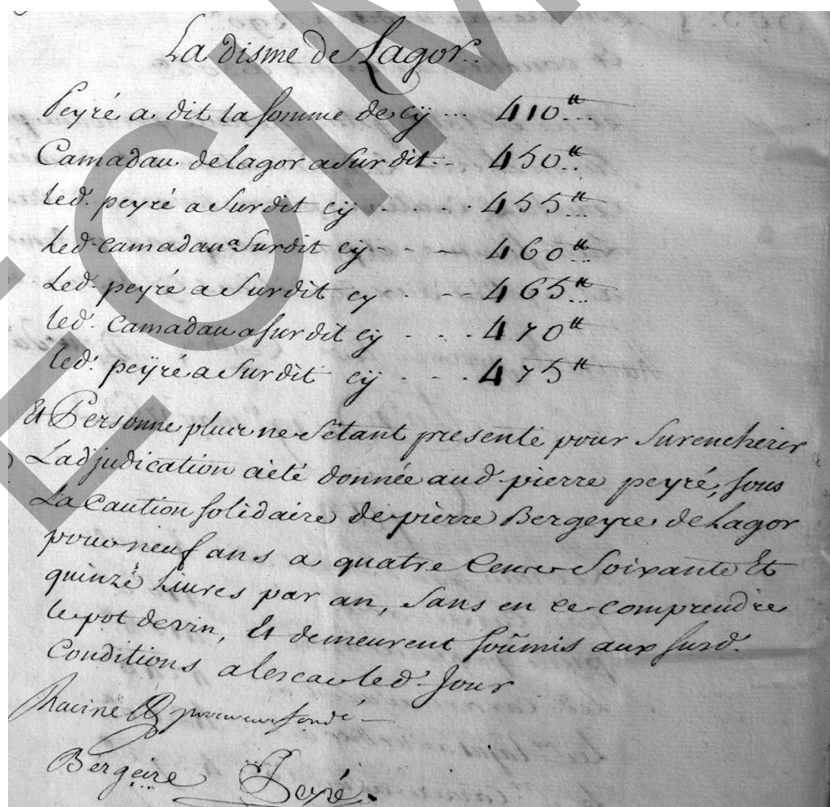 La disme de Lagor..
Peyré a dit la somme de cy ... 410tt
Camadau de lagor a Surdit .. 450tt
led. peyré a Surdit cy ..... 455tt
led. camadau a Surdit cy .. 460tt
Led. peyré a Surdit cy .. 465tt
led. Camadau a surdit cy ... 470tt
led. peyré a Surdit cy ... 475tt
Et Personne plus ne S'étant presenté pour Surencherir
Ladjudication a eté donnée aud. pierre peyré, sous
La Caution solidaire de pierre Bergeyre de Lagor
pour neuf ans a quatre Cens Soixante Et
quinze Livres par an, Sans en ce comprendre
le pot de vin, Et demeurent soûmis aux susd.
Conditions a led. Jour
Racine fondé
Bergeire Peyré.